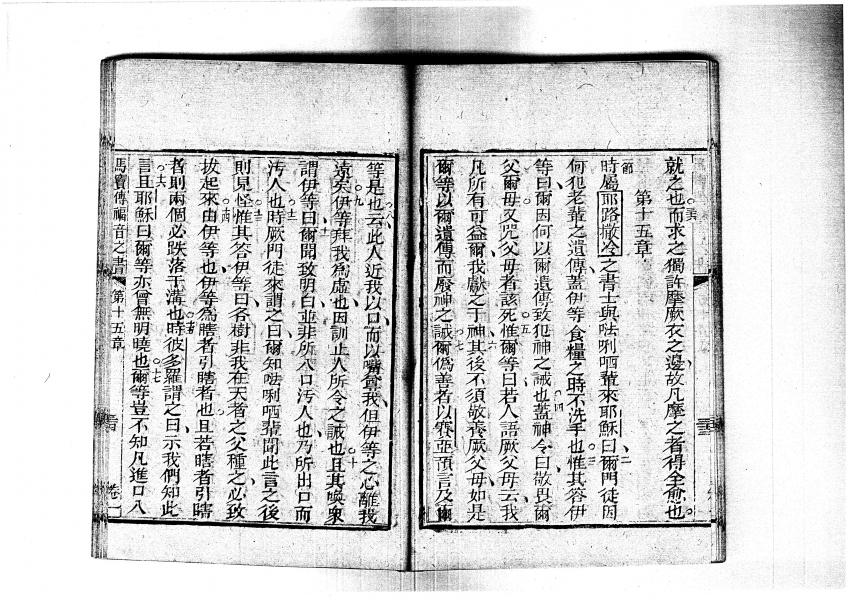 就之也而求之獨許摩厥衣之邊故凡摩之者得全愈也
第十五章
節時屬耶路撒冷之書士與𠵽唎哂輩來耶穌曰爾門徒因二
何犯老輩之遺傳蓋伊等食糧之時不洗手也惟其答伊三
等曰爾因何以爾遺傳致犯神之誡也蓋神令曰敬畏爾四
父爾母又咒父母者該死惟爾等曰若人語厥父母云我五
凡所有可益爾我獻之于神其後不須敬養厥父母如是六
爾等以爾遺傳而廢神之誡爾偽善者以賽亞預言及爾七
等是也云此人近我以口而以嘴尊我但伊等之心離我八
遠矣伊等拜我為虛也因訓止人所令之誡也且其喚衆九十
謂伊等曰爾聞致明白並非所入口汚人也乃所出口而十一
汚人也時厥門徒來謂之曰爾知𠵽唎哂輩聞此言之後十二
則見怪惟其答伊等曰各樹非我在天者之父種之必致十三
拔起來由伊等也伊等為瞎者引瞎者也且若瞎者引瞎十四
者則兩個必跌落于溝也時彼多羅謂之曰示我們知此十五
言且耶穌曰爾等亦曾無明曉也爾等豈不知凡進口入十六十七
馬竇傳福音之書 第十五章 卷一